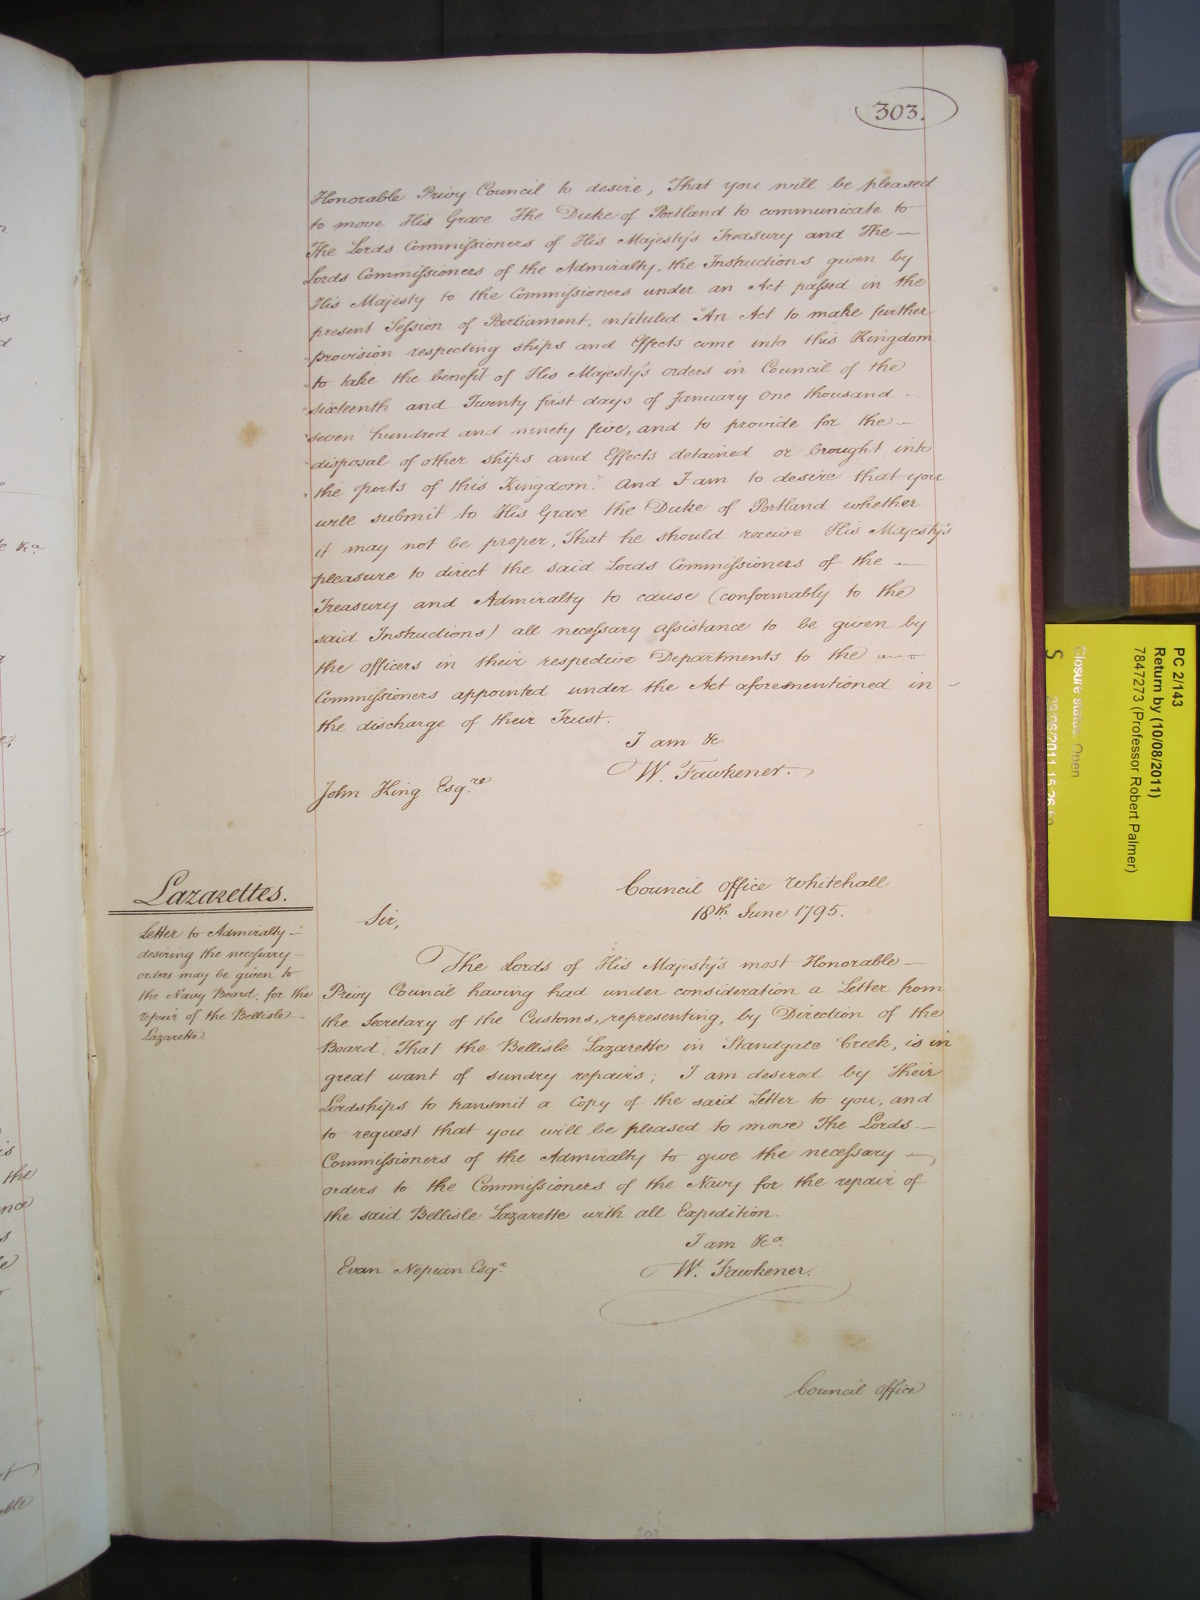 303.
Honorable Privy Council to desire, That you will be pleased
to move His Grace The Duke of Portland to communicate to
The Lords Commissioners of His Majesty's Treasury and The
Lords Commissioners of the Admiralty, the Instructions given by
His Majesty to the Commissioners under an Act passed in the
present Session of Parliament, intituled "An Act to make further
provision respecting ships and Effects come into this Kingdom
to take the benefit of His Majesty's orders in Council of the
sixteenth and Twenty first days of January One thousand
seven hundred and ninety five, and to provide for the
disposal of other ships and Effects detained or brought into
the ports of this Kingdom." And I am to desire that you
will submit to His Grace the Duke of Portland whether
it may not be proper, That he should receive His Majesty's
pleasure to direct the said Lords Commissioners of the
Treasury and Admiralty to cause (conformably to the
said Instructions) all necessary assistance to be given by
the officers in their respective Departments to the
Commissioners appointed under the Act aforementioned in
the discharge of their Trust.
I am &c
W. Fawkener.
John King Esqre
Lazarettes.
Letter to Admiralty
desiring the necessary
orders may be given to
the Navy Board, for the
repair of the Bellisle
Lazarette
Council Office Whitehall
18th June 1795.
Sir,
The Lords of His Majesty's most Honorable
Privy Council having had under consideration a Letter from
the Secretary of the Customs, representing, by Direction of the
Board, That the Bellisle Lazarette in Standgate Creek, is in
great want of sundry repairs; I am desired by Their
Lordships to transmit a Copy of the said Letter to you, and
to request that you will be pleased to move The Lords
Commissioners of the Admiralty to give the necessary
orders to the Commissioners of the Navy for the repair of
the said Bellisle Lazarette with all Expedition.
I am &ca
W. Fawkener.
Evan Nepean Esqr
Council Office
PC 2/143
Return by (10/08/2011)
7847273 (Professor Robert Palmer)
Closure status: Open
S